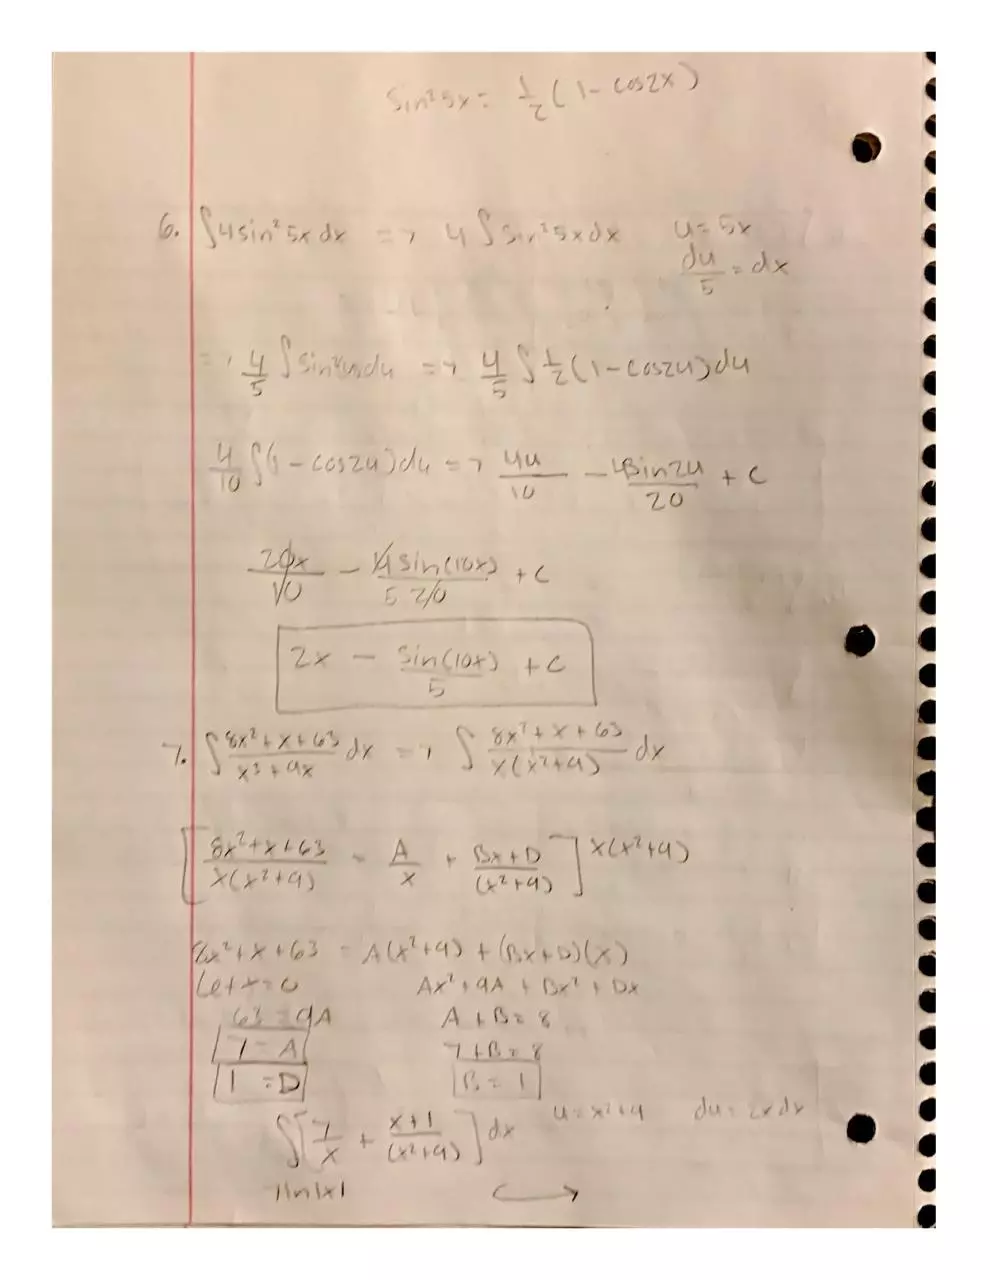 sin²5x = 1/2 (1 - cos2x)
6. ∫4sin²5x dx => 4 ∫sin²5x dx u = 5x
du/5 = dx
=> 4/5 ∫sin²u du => 4/5 ∫ 1/2 (1 - cos2u) du
4/10 ∫(1 - cos2u) du => 4u/10 - 4sin2u/20 + C
20x/10 - 4sin(10x)/20 + C
5
2x - sin(10x)/5 + C
7. ∫ 8x² + x + 63/x³ + 9x dx => ∫ 8x² + x + 63/x(x² + 9) dx
[8x² + x + 63/x(x² + 9) = A/x + Bx + D/(x² + 9)] x(x² + 9)
8x² + x + 63 = A(x² + 9) + (Bx + D)(x)
Let x = 0 Ax² + 9A + Bx² + Dx
63 = 9A A + B = 8
7 = A 7 + B = 8
1 = D B = 1
∫[7/x + x + 1/(x² + 9)] dx u = x² + 9 du = 2x dx
7ln|x| →